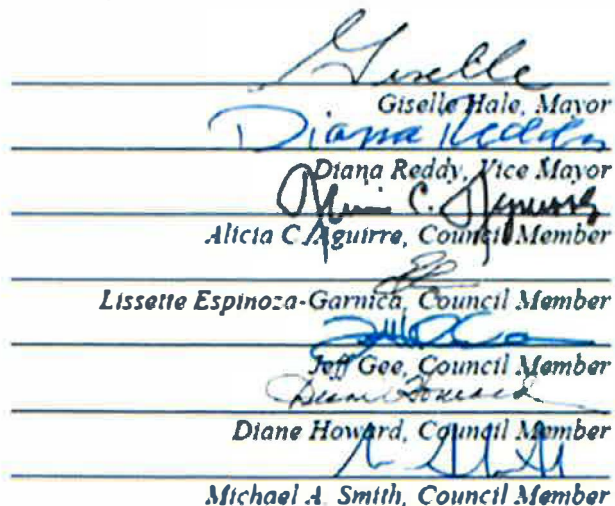 Giselle
Giselle Hale, Mayor
Diana Reddy
Diana Reddy, Vice Mayor
Alicia C. Aguirre
Alicia C. Aguirre, Council Member
Lissette Espinoza-Garnica, Council Member
Jeff Gee, Council Member
Diane Howard
Diane Howard, Council Member
Michael A. Smith, Council Member